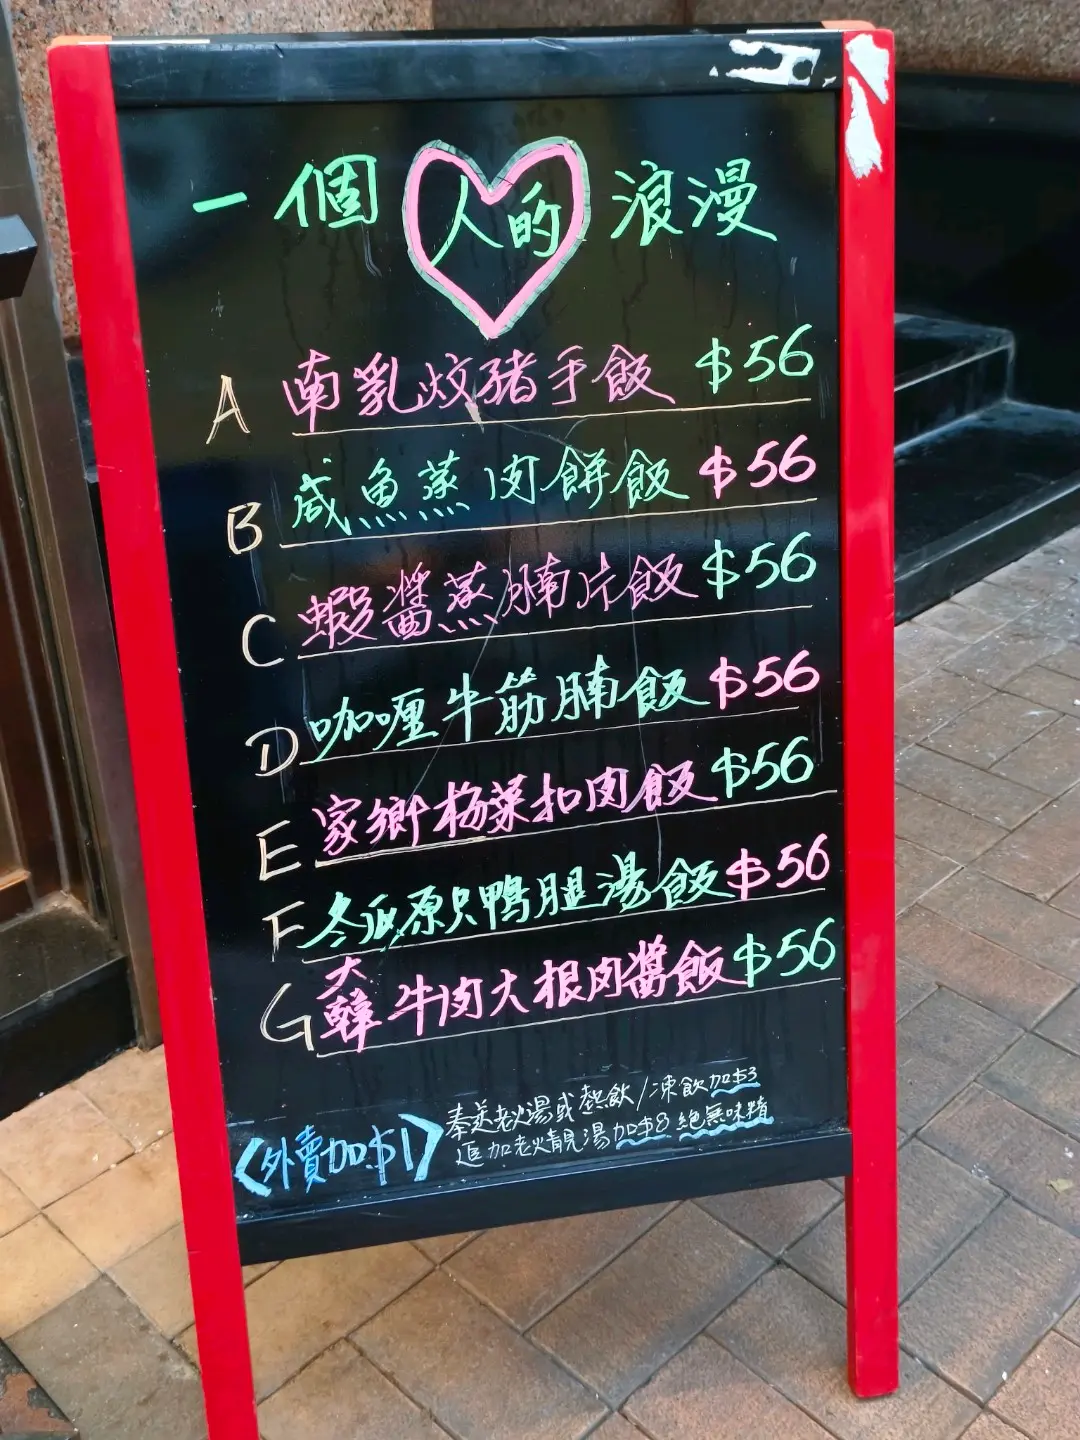 一個人的浪漫
A 南乳炆豬手飯 $56
B 咸魚蒸肉餅飯 $56
C 蝦醬蒸腩片飯 $56
D 咖喱牛筋腩飯 $56
E 家鄉梅菜扣肉飯 $56
F 冬瓜原只鴨腿湯飯 $56
G 大韓牛肉大根肉醬飯 $56
奉送老火湯或熱飲/凍飲加$3
〈外賣加$1〉追加老火靚湯加$8 絕無味精